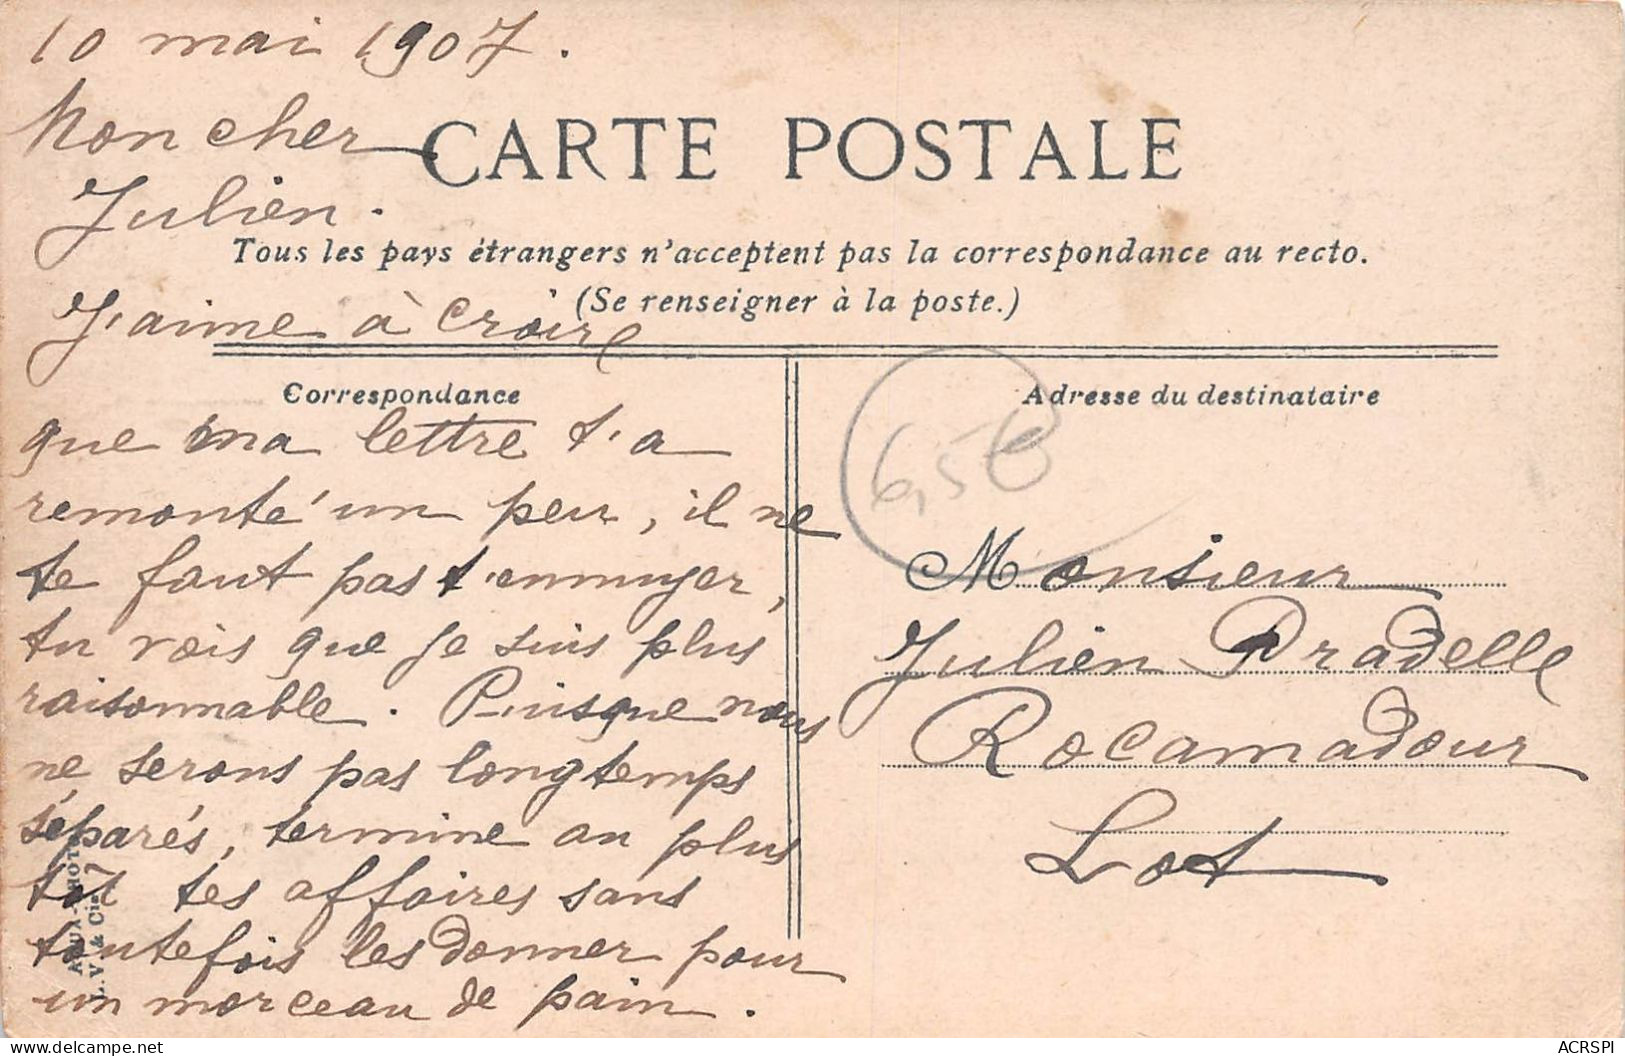 10 mai 1907.
Mon cher
CARTE POSTALE
Julien.
Tous les pays étrangers n'acceptent pas la correspondance au recto.
(Se renseigner à la poste.)
J'aime à croire
Correspondance
que ma lettre t'a
remonté un peu, il ne
te faut pas t'ennuyer,
tu vois que je suis plus
raisonnable. Puisque nous
ne serons pas longtemps
séparés, termine au plus
tôt tes affaires sans
toutefois les donner pour
un morceau de pain.
AQUA-PHOTO
L. V & Cie 7
Adresse du destinataire
6,5€
Monsieur
Julien Pradelle
Rocamadour
Lot
ACRSPI